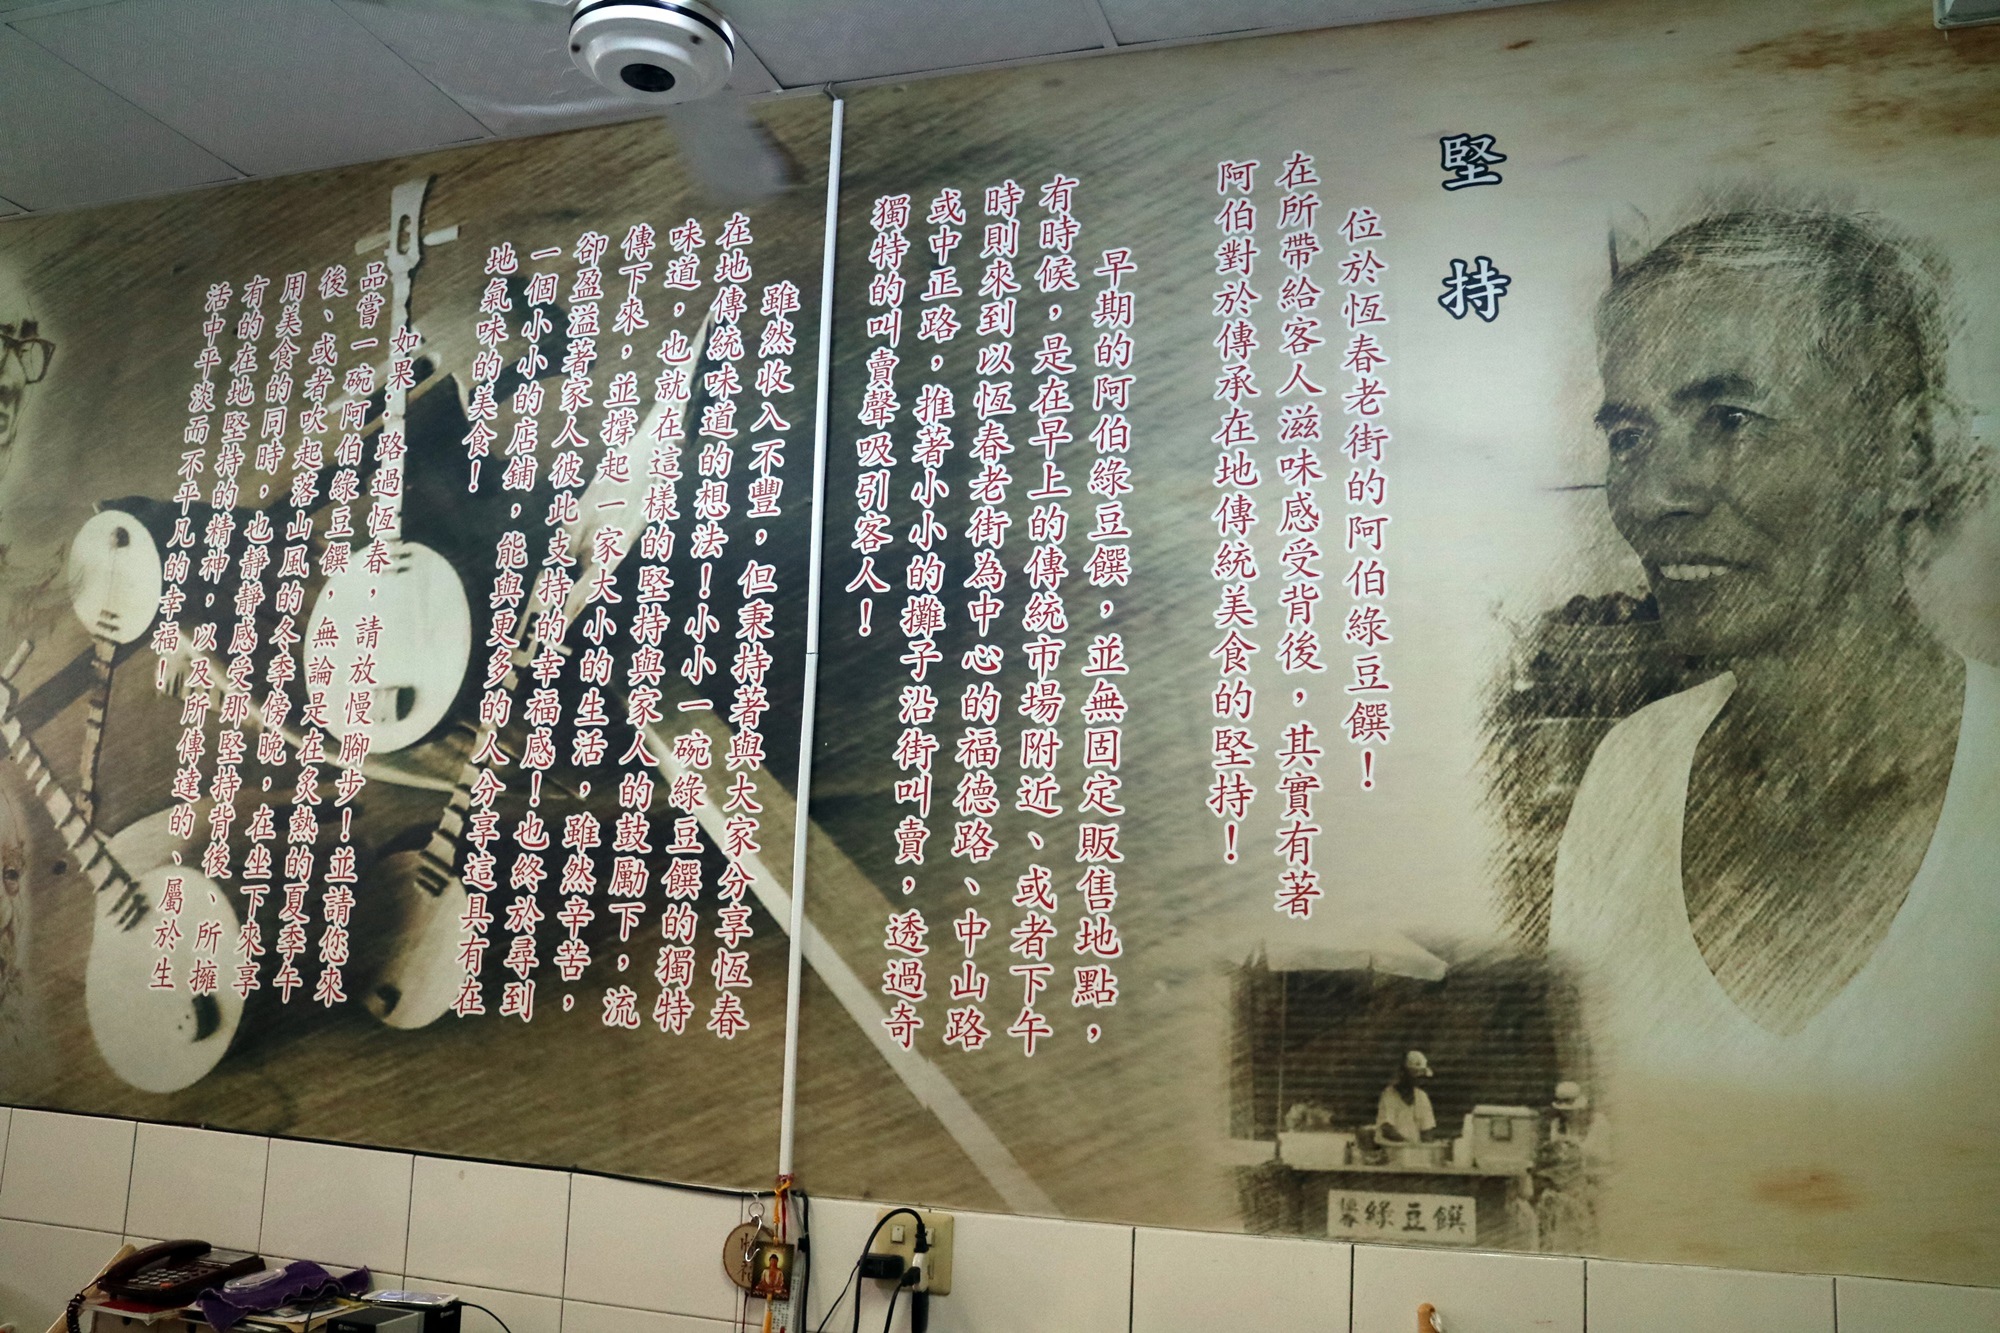 堅持
位於恆春老街的阿伯綠豆饌！
在所帶給客人滋味感受背後，其實有著
阿伯對於傳承在地傳統美食的堅持！
早期的阿伯綠豆饌，並無固定販售地點，
有時候，是在早上的傳統市場附近、或者下午
時則來到以恆春老街為中心的福德路、中山路
或中正路，推著小小的攤子沿街叫賣，透過奇
獨特的叫賣聲吸引客人！
雖然收入不豐，但秉持著與大家分享恆春
在地傳統味道的想法！小小一碗綠豆饌的獨特
味道，也就在這樣的堅持與家人的鼓勵下，流
傳下來，並撐起一家大小的生活，雖然辛苦，
卻盈溢著家人彼此支持的幸福感！也終於尋到
一個小小的店鋪，能與更多的人分享這具有在
地氣味的美食！
如果：路過恆春，請放慢腳步！並請您來
品嘗一碗阿伯綠豆饌，無論是在炙熱的夏季午
後、或者吹起落山風的冬季傍晚，在坐下來享
用美食的同時，也靜靜感受那堅持背後、所擁
有的在地堅持的精神，以及所傳達的、屬於生
活中平淡而不平凡的幸福！
綠豆饌